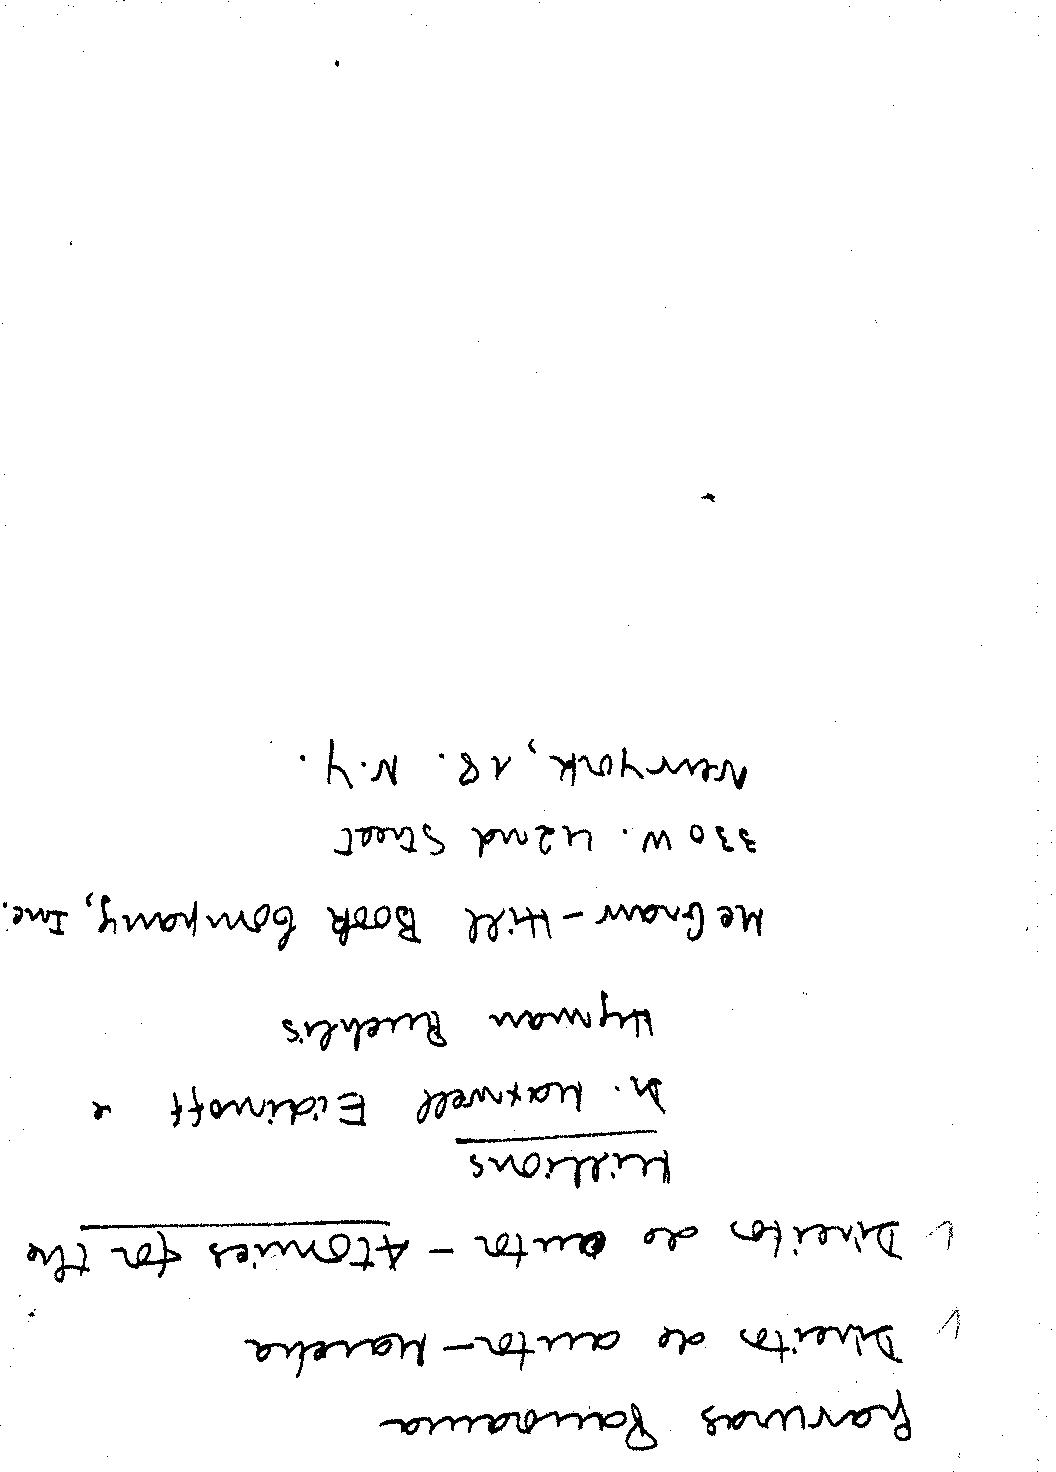 Gravuras Panorama
Direito de autor - Marcha
Direitos de autor - Atomics for the
Millions
Dr. Maxwell Eidinoff e
Hyman Ruchlis
McGraw-Hill Book Company, Inc.
330 W. 42nd Street
New York, 18. N.Y.